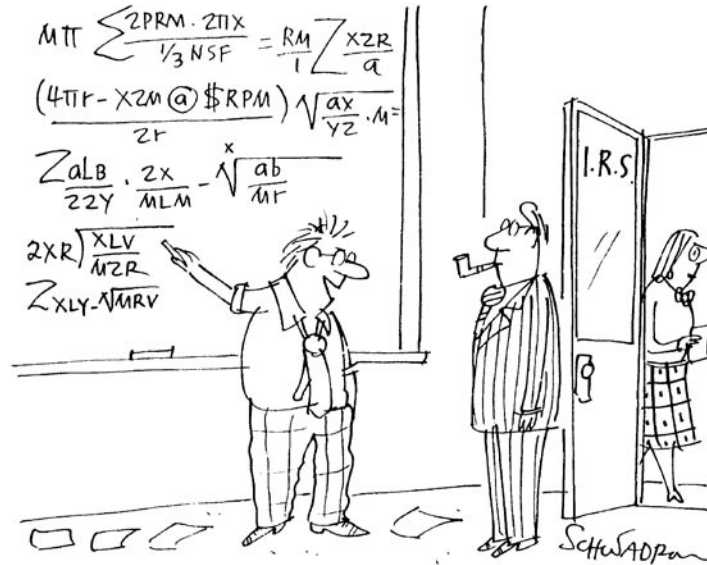 MΠ Σ 2PRM · 2ΠX / 1/3 NSF = RM / 1 Σ X2R / a
(4Πr - X2M @ $RPM) / 2r √ ax / YZ · M =
Σ aLB / 22Y · 2X / MLM - x√ ab / Mr
2XR) XLV / M2R
Σ XLY - √MRV
I.R.S.
SCHWADRON